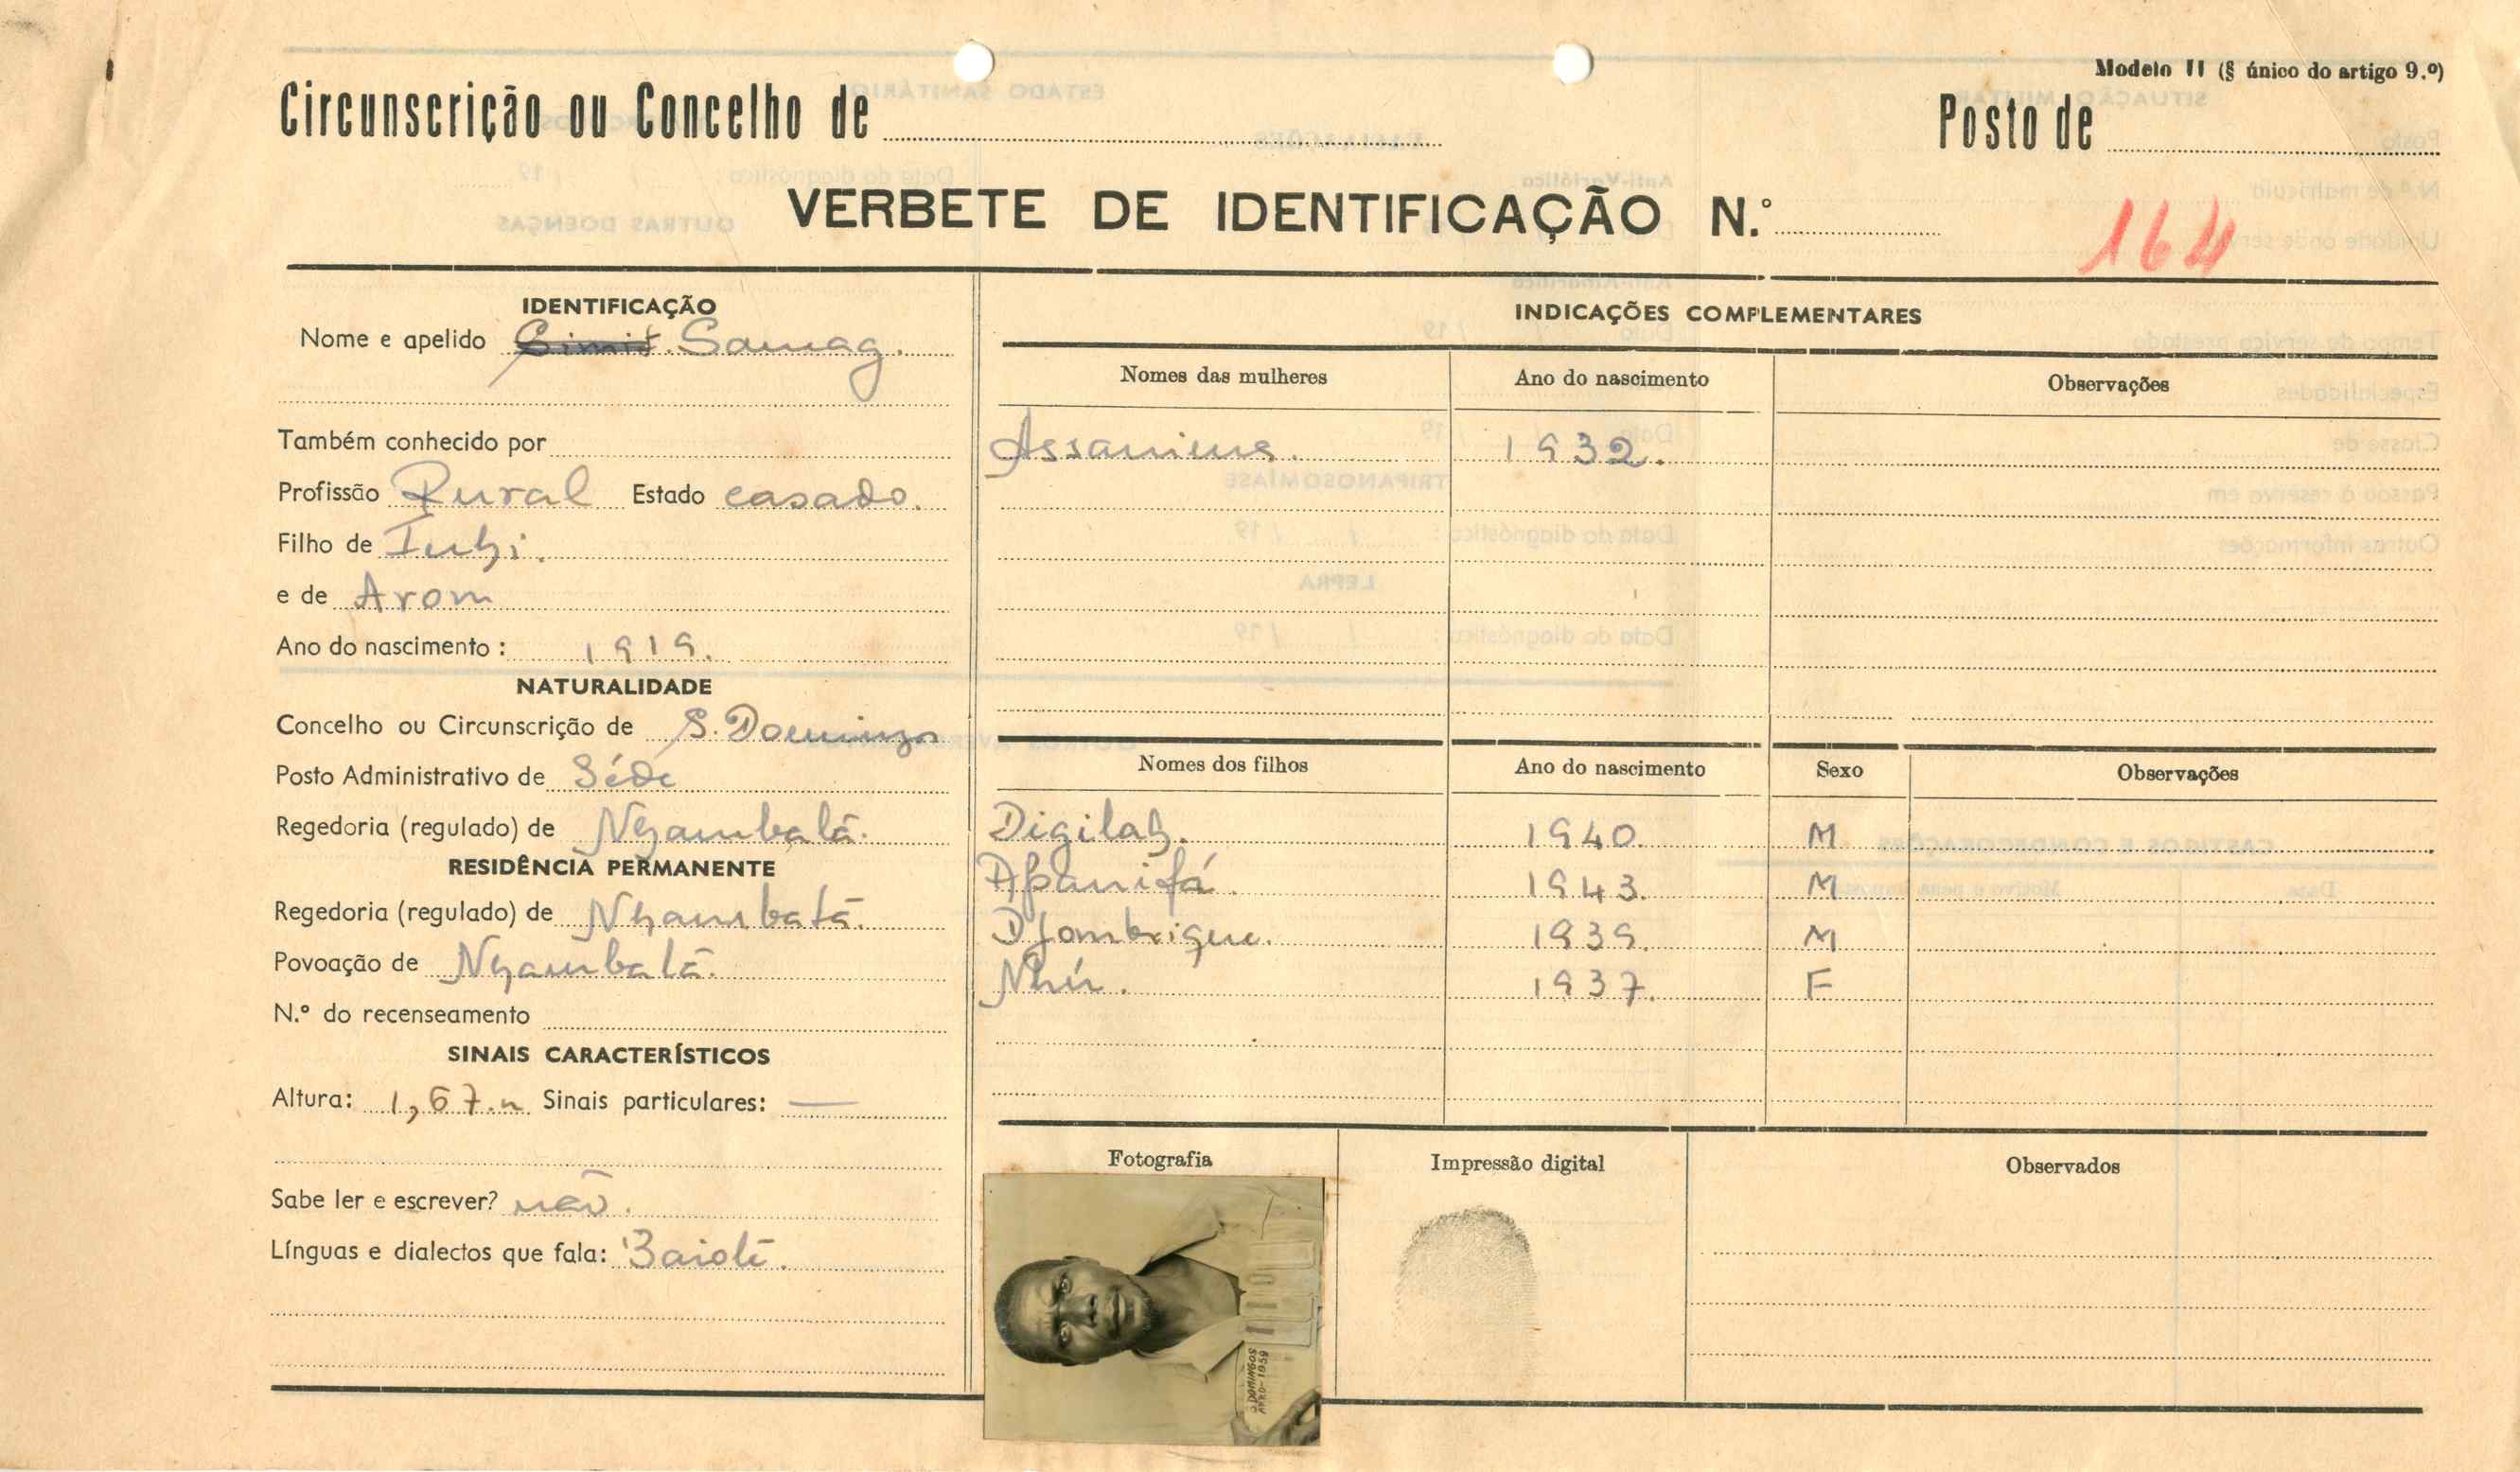 Modelo II (§ único do artigo 9.º)
Circunscrição ou Concelho de
Posto de
VERBETE DE IDENTIFICAÇÃO N.º
164
IDENTIFICAÇÃO
Nome e apelido Samag.
Também conhecido por
Profissão Rural Estado casado.
Filho de
e de Arom
Ano do nascimento: 1919.
NATURALIDADE
Concelho ou Circunscrição de S. Domingos
Posto Administrativo de Séde
Regedoria (regulado) de Nhambalã.
RESIDÊNCIA PERMANENTE
Regedoria (regulado) de Nhambalã.
Povoação de Nhambalã.
N.º do recenseamento
SINAIS CARACTERÍSTICOS
Altura: 1,67.m Sinais particulares: —
Sabe ler e escrever? não.
Línguas e dialectos que fala: Baiote.
INDICAÇÕES COMPLEMENTARES
Nomes das mulheres Ano do nascimento Observações
1932.
Nomes dos filhos Ano do nascimento Sexo Observações
Digilah. 1940. M
Apanifá. 1943. M
Djombrique. 1939. M
1937. F
Fotografia Impressão digital Observados
DOMINGOS
1959